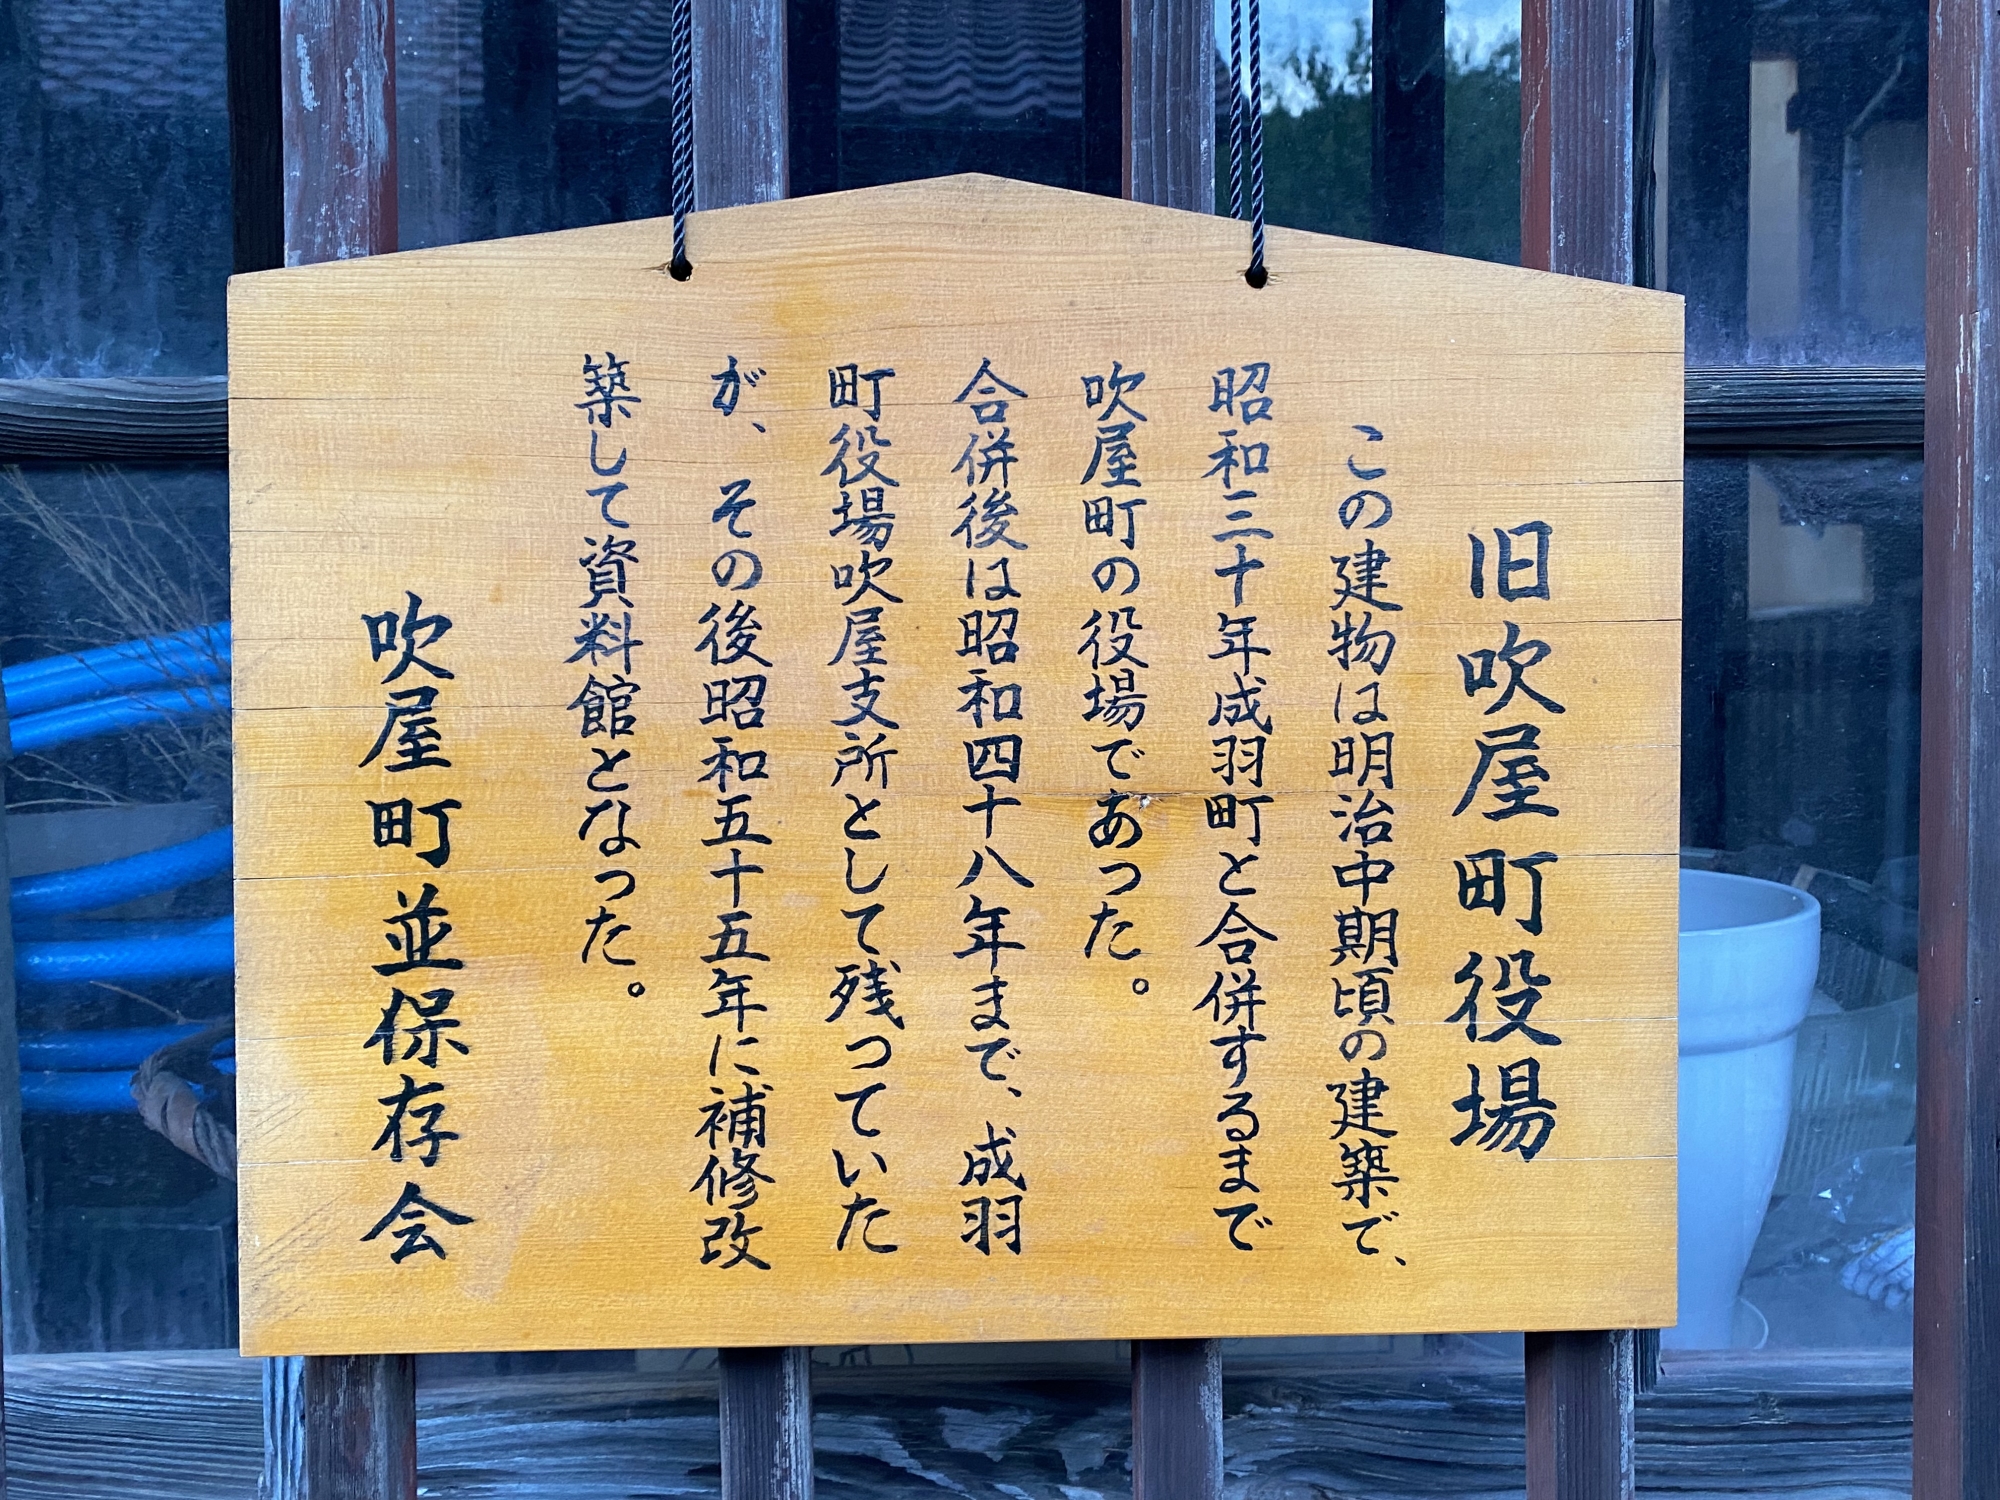 旧吹屋町役場
この建物は明治中期頃の建築で、
昭和三十年成羽町と合併するまで
吹屋町の役場であった。
合併後は昭和四十八年まで、成羽
町役場吹屋支所として残っていた
が、その後昭和五十五年に補修改
築して資料館となった。
吹屋町並保存会